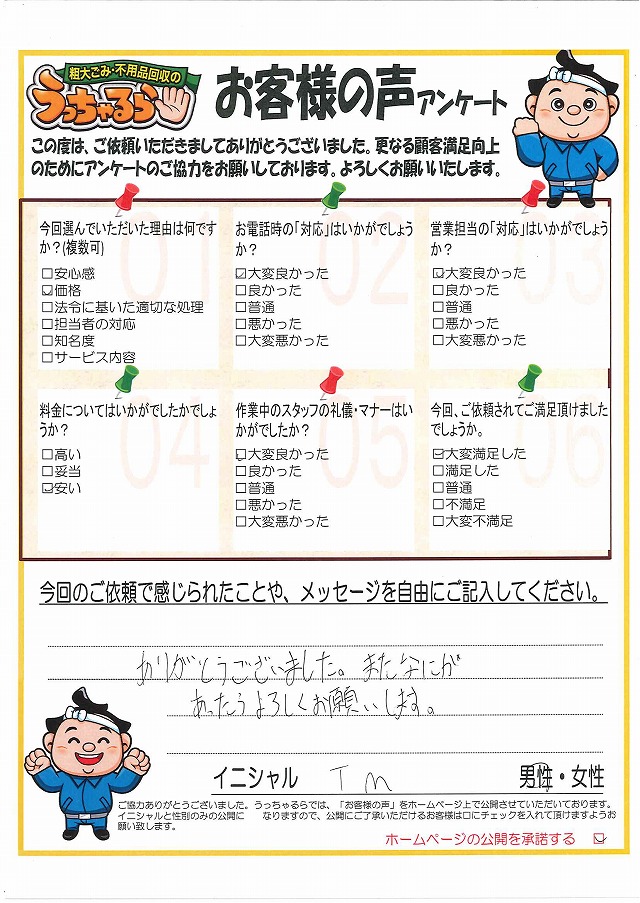 粗大ごみ・不用品回収の
うっちゃるら
お客様の声アンケート
この度は、ご依頼いただきましてありがとうございました。更なる顧客満足向上
のためにアンケートのご協力をお願いしております。よろしくお願いいたします。
01
今回選んでいただいた理由は何です
か?(複数可)
□安心感
☑価格
□法令に基いた適切な処理
□担当者の対応
□知名度
□サービス内容
02
お電話時の「対応」はいかがでしょう
か?
☑大変良かった
□良かった
□普通
□悪かった
□大変悪かった
03
営業担当の「対応」はいかがでしょう
か?
☑大変良かった
□良かった
□普通
□悪かった
□大変悪かった
04
料金についてはいかがでしたかでしょ
うか?
□高い
□妥当
☑安い
05
作業中のスタッフの礼儀・マナーはい
かがでしたか?
☑大変良かった
□良かった
□普通
□悪かった
□大変悪かった
06
今回、ご依頼されてご満足頂けました
でしょうか。
☑大変満足した
□満足した
□普通
□不満足
□大変不満足
今回のご依頼で感じられたことや、メッセージを自由にご記入してください。
ありがとうございました。またなにか
あったらよろしくお願いします。
イニシャル T M 男性・女性
ご協力ありがとうございました。うっちゃるらでは、「お客様の声」をホームページ上で公開させていただいております。
イニシャルと性別のみの公開に なりますので、公開にご了承いただけるお客様は□にチェックを入れて頂けますようお
願い致します。
ホームページの公開を承諾する ☑